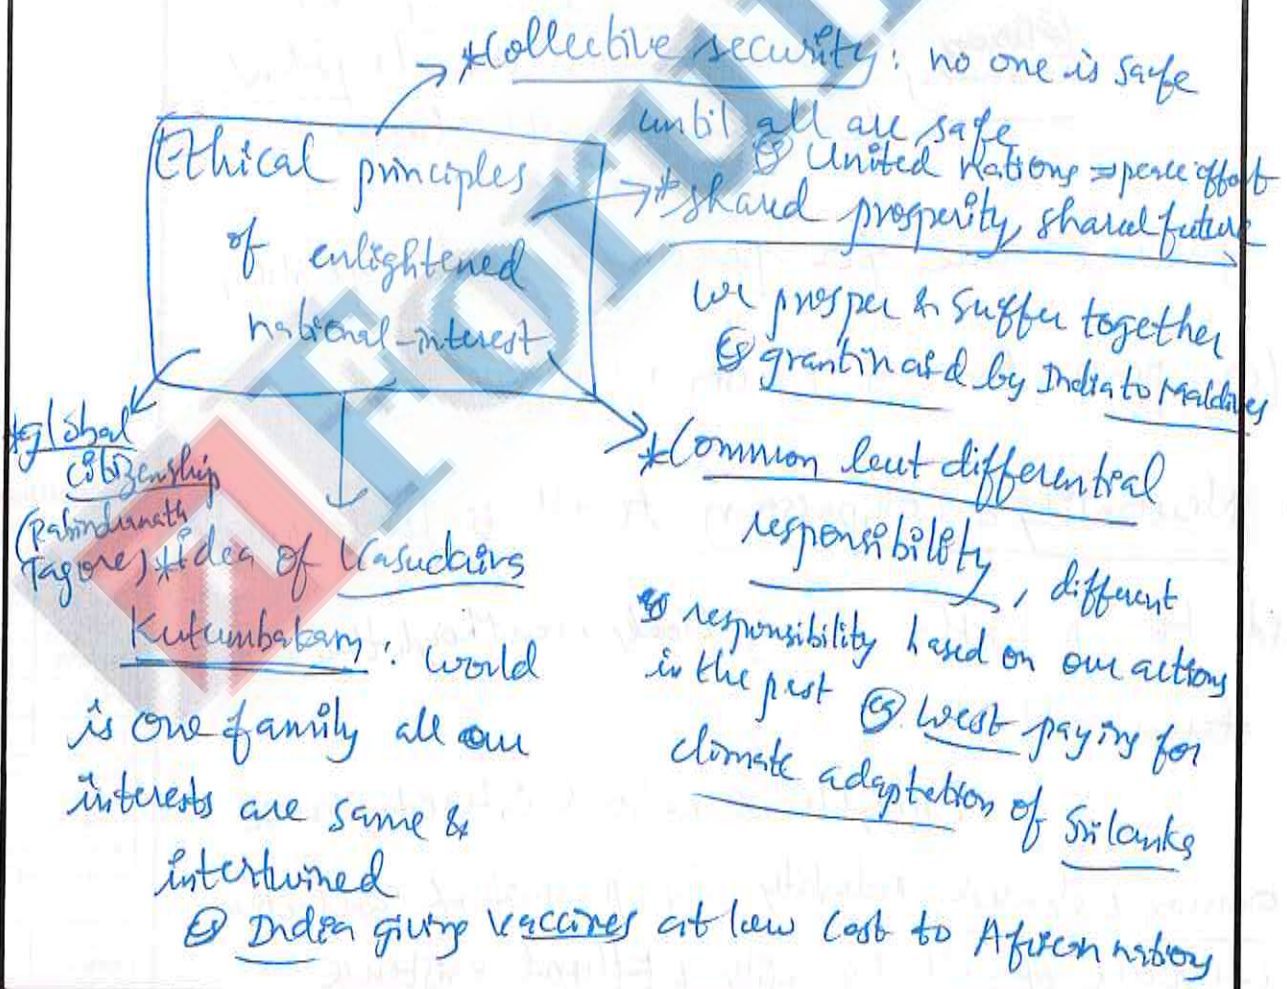 *Collective security: no one is safe
until all are safe
eg United Nations ⇒ peace effort
Ethical principles
of enlightened
national-interest
*shared prosperity, shared future
we prosper & suffer together
eg grant in aid by India to Maldives
*Common but differential
responsibility, different
responsibility based on our actions
in the past eg West paying for
climate adaptation of Srilanka
*global
citizenship
(Rabindernath
Tagore)
*idea of Vasudaiva
Kutumbakam: world
is one family all our
interests are same &
intertwined
eg India giving vaccines at low cost to African nations
Forum